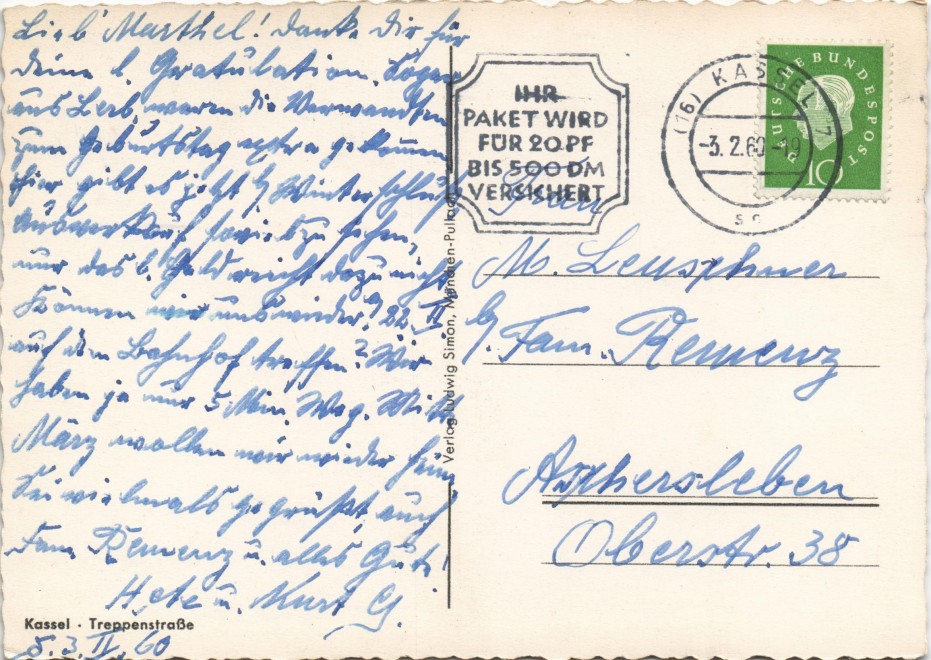 Lieb' Marthel! Danke Dir für
Deine l. Gratulation. Sogar
aus Leib. waren die Verwandten
zum Geburtstag extra gekommen
Hier gibt es jetzt b/ Winterschluß
Ausverkauf soviel zu sehen,
nur das l. Geld reicht dazu nicht
Können wir uns wieder 22. II
auf dem Bahnhof treffen? Wir
haben ja nur 5 Min. Weg. Mitte
März wollen wir wieder heim
Sei vielmals gegrüßt, auch
Fam. Remenz u. alles Gute!
u. Kurt G.
Kassel · Treppenstraße
3. II. 60
Verlag Ludwig Simon, München-Pullach
IHR
PAKET WIRD
FÜR 20 PF
BIS 500 DM
VERSICHERT
(16) KASSEL 7
-3. 2. 60 -19
DEUTSCHE BUNDESPOST
10
Frau
M. Leuschner
b/ Fam. Remenz
Aschersleben
Oberstr. 38